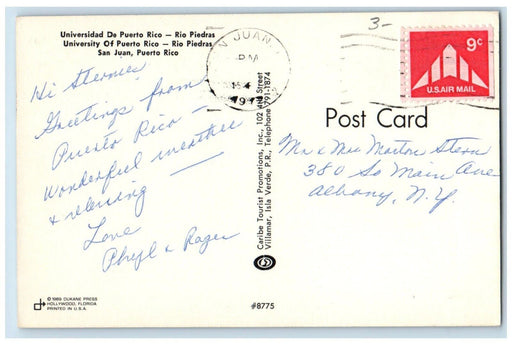 Universidad De Puerto Rico — Rio Piedras
University Of Puerto Rico — Rio Piedras
San Juan, Puerto Rico
Hi Sternies
Greetings from
Puerto Rico —
Wonderful weather
& relaxing —
Love
Phyl & Roger
© 1969 DUKANE PRESS
HOLLYWOOD, FLORIDA
PRINTED IN U.S.A.
N JUAN
PM
197
Caribe Tourist Promotions, Inc., 102 2nd Street
Villamar, Isla Verde, P.R., Telephone 791-1874
#8775
3-
9c
U.S. AIR MAIL
Post Card
Mr & Mrs Morton Stern
380 So Main Ave
Albany, N.Y.